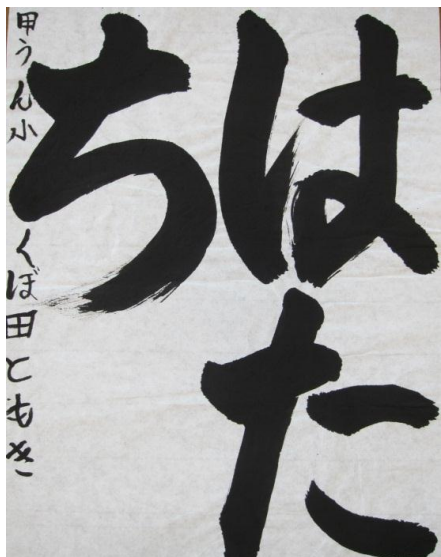 はた
ち
甲うん小 くぼ田ともき